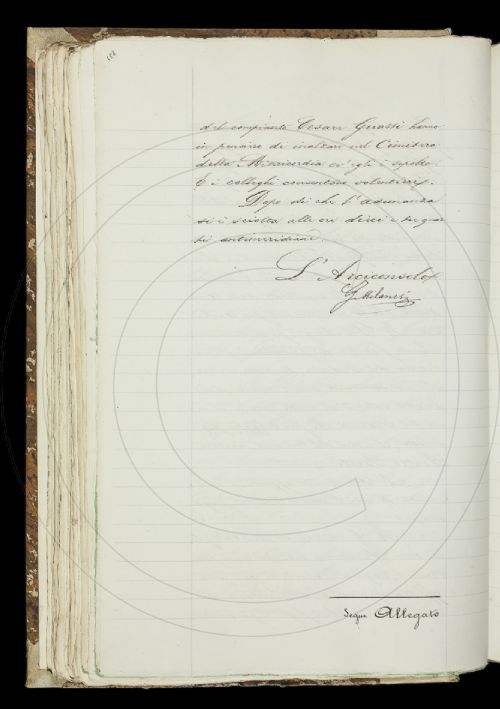 del compianto Cesare Guasti hanno
in pensiero di inalzare nel Cimitero
della Misericordia ov'egli è sepolto.
E i colleghi consentono volentieri.
Dopo di che l'adunanza
si è sciolta alle ore dieci e tre quar
ti antimeridiane.
L'Arciconsolo
G Milanesi
Segue Allegato